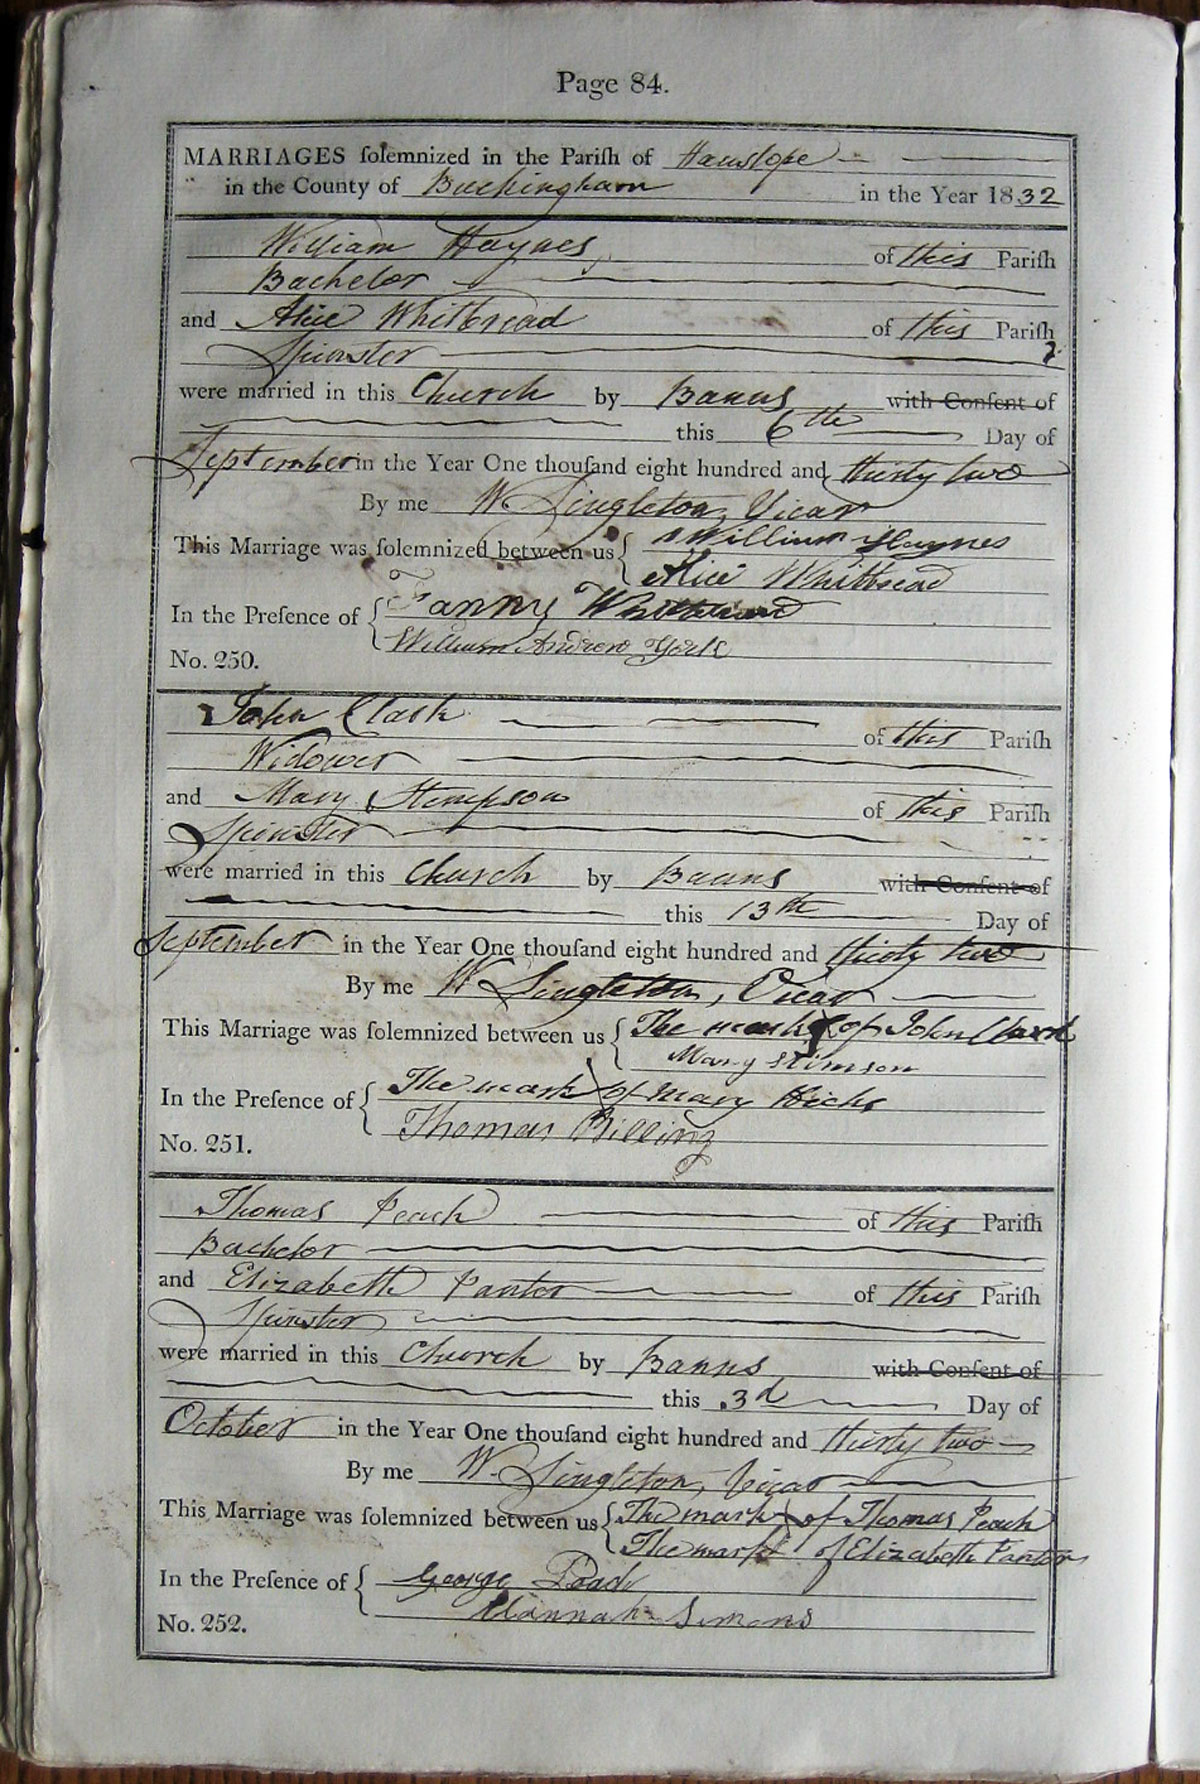 Page 84.
MARRIAGES ſolemnized in the Pariſh of Hanslope
in the County of Buckingham in the Year 1832
William Haynes of this Pariſh
Bachelor
and Alice Whitbread of this Pariſh
Spinster
were married in this Church by Banns with Conſent of
this 6th Day of
September in the Year One thouſand eight hundred and thirty two
By me W Singleton, Vicar
This Marriage was ſolemnized between us William Haynes
Alice Whitbread
In the Preſence of Fanny Whitbread
William Andrew York
No. 250.
John Clark of this Pariſh
Widower
and Mary Stimpson of this Pariſh
Spinster
were married in this Church by Banns with Conſent of
this 13th Day of
September in the Year One thouſand eight hundred and thirty two
By me W Singleton, Vicar
This Marriage was ſolemnized between us The mark X of John Clark
Mary Stimson
In the Preſence of The mark X of Mary Hicks
Thomas Billing
No. 251.
Thomas Peach of this Pariſh
Bachelor
and Elizabeth Panter of this Pariſh
Spinster
were married in this Church by Banns with Conſent of
this 3d Day of
October in the Year One thouſand eight hundred and thirty two
By me W. Singleton, Vicar
This Marriage was ſolemnized between us The mark X of Thomas Peach
The mark X of Elizabeth Panter
In the Preſence of George Peach
Hannah Simons
No. 252.